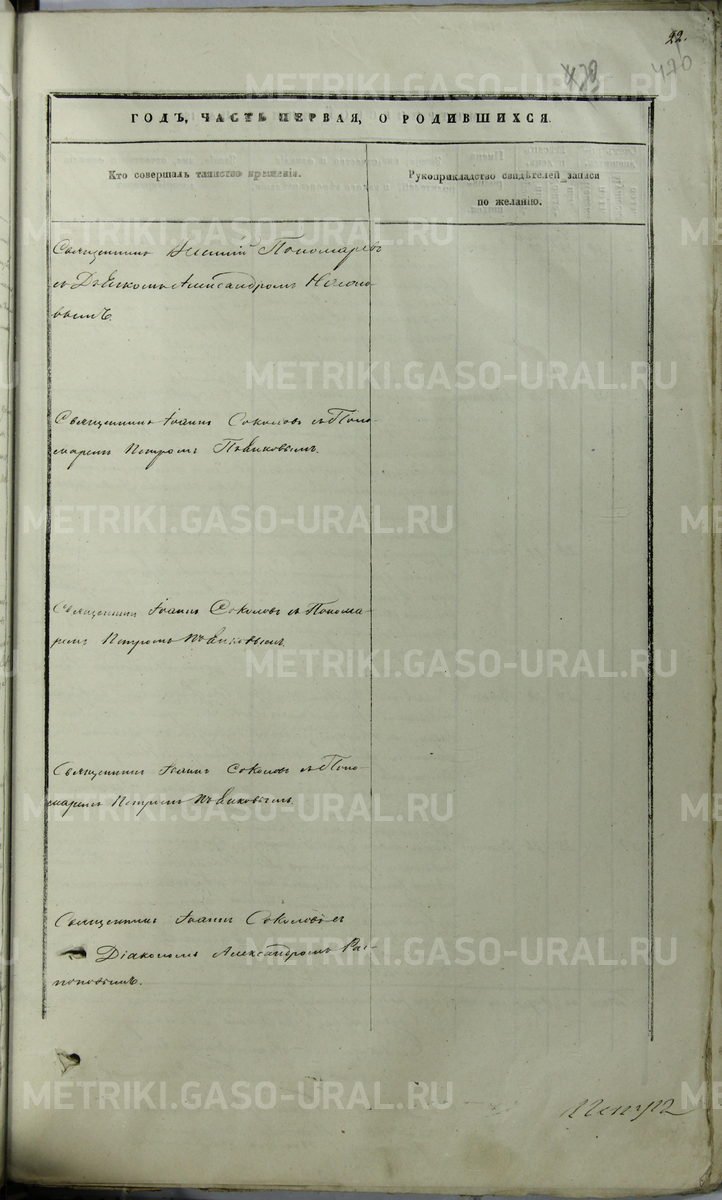 22.
470
ГОДЪ, ЧАСТЬ ПЕРВАЯ, О РОДИВШИХСЯ.
Кто совершалъ таинство крещенія.
Рукоприкладство свидѣтелей записи
по желанію.
Священникъ Пономаревъ
съ Александромъ
вымъ.
Священникъ Іоаннъ Соколовъ съ Поно-
маремъ Петромъ Пѣвковымъ.
Священникъ Іоаннъ Соколовъ съ Понома-
ремъ Петромъ Пѣвковымъ.
Священникъ Іоаннъ Соколовъ съ Поно-
маремъ Петромъ Пѣвковымъ.
Священникъ Іоаннъ Соколовъ съ
Діакономъ Александромъ Ра-
поповымъ.
METRIKI.GASO-URAL.RU